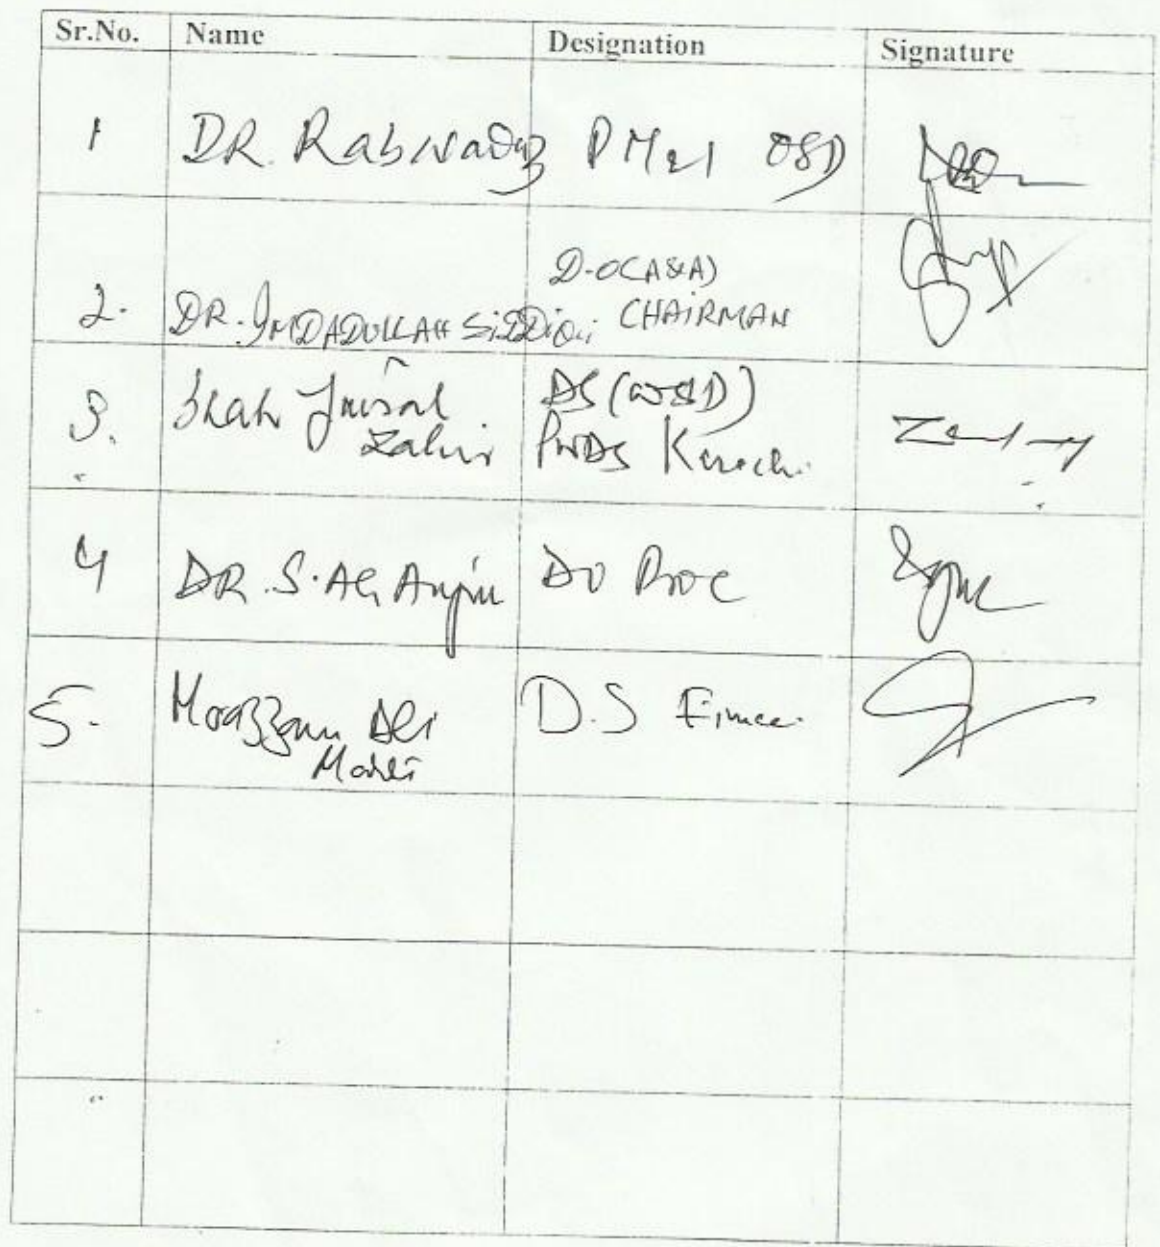 Sr.No. Name Designation Signature
1 DR. Rabnawaz OSD
2. DR. IMDADULLAH SiDDiQui D-O(A&A) CHAIRMAN
3. Shah Faisal Zahir DS (W&D) Karachi
4 DR. S. Ali Anjum DO Proc
5. Moazzam Ali D.S